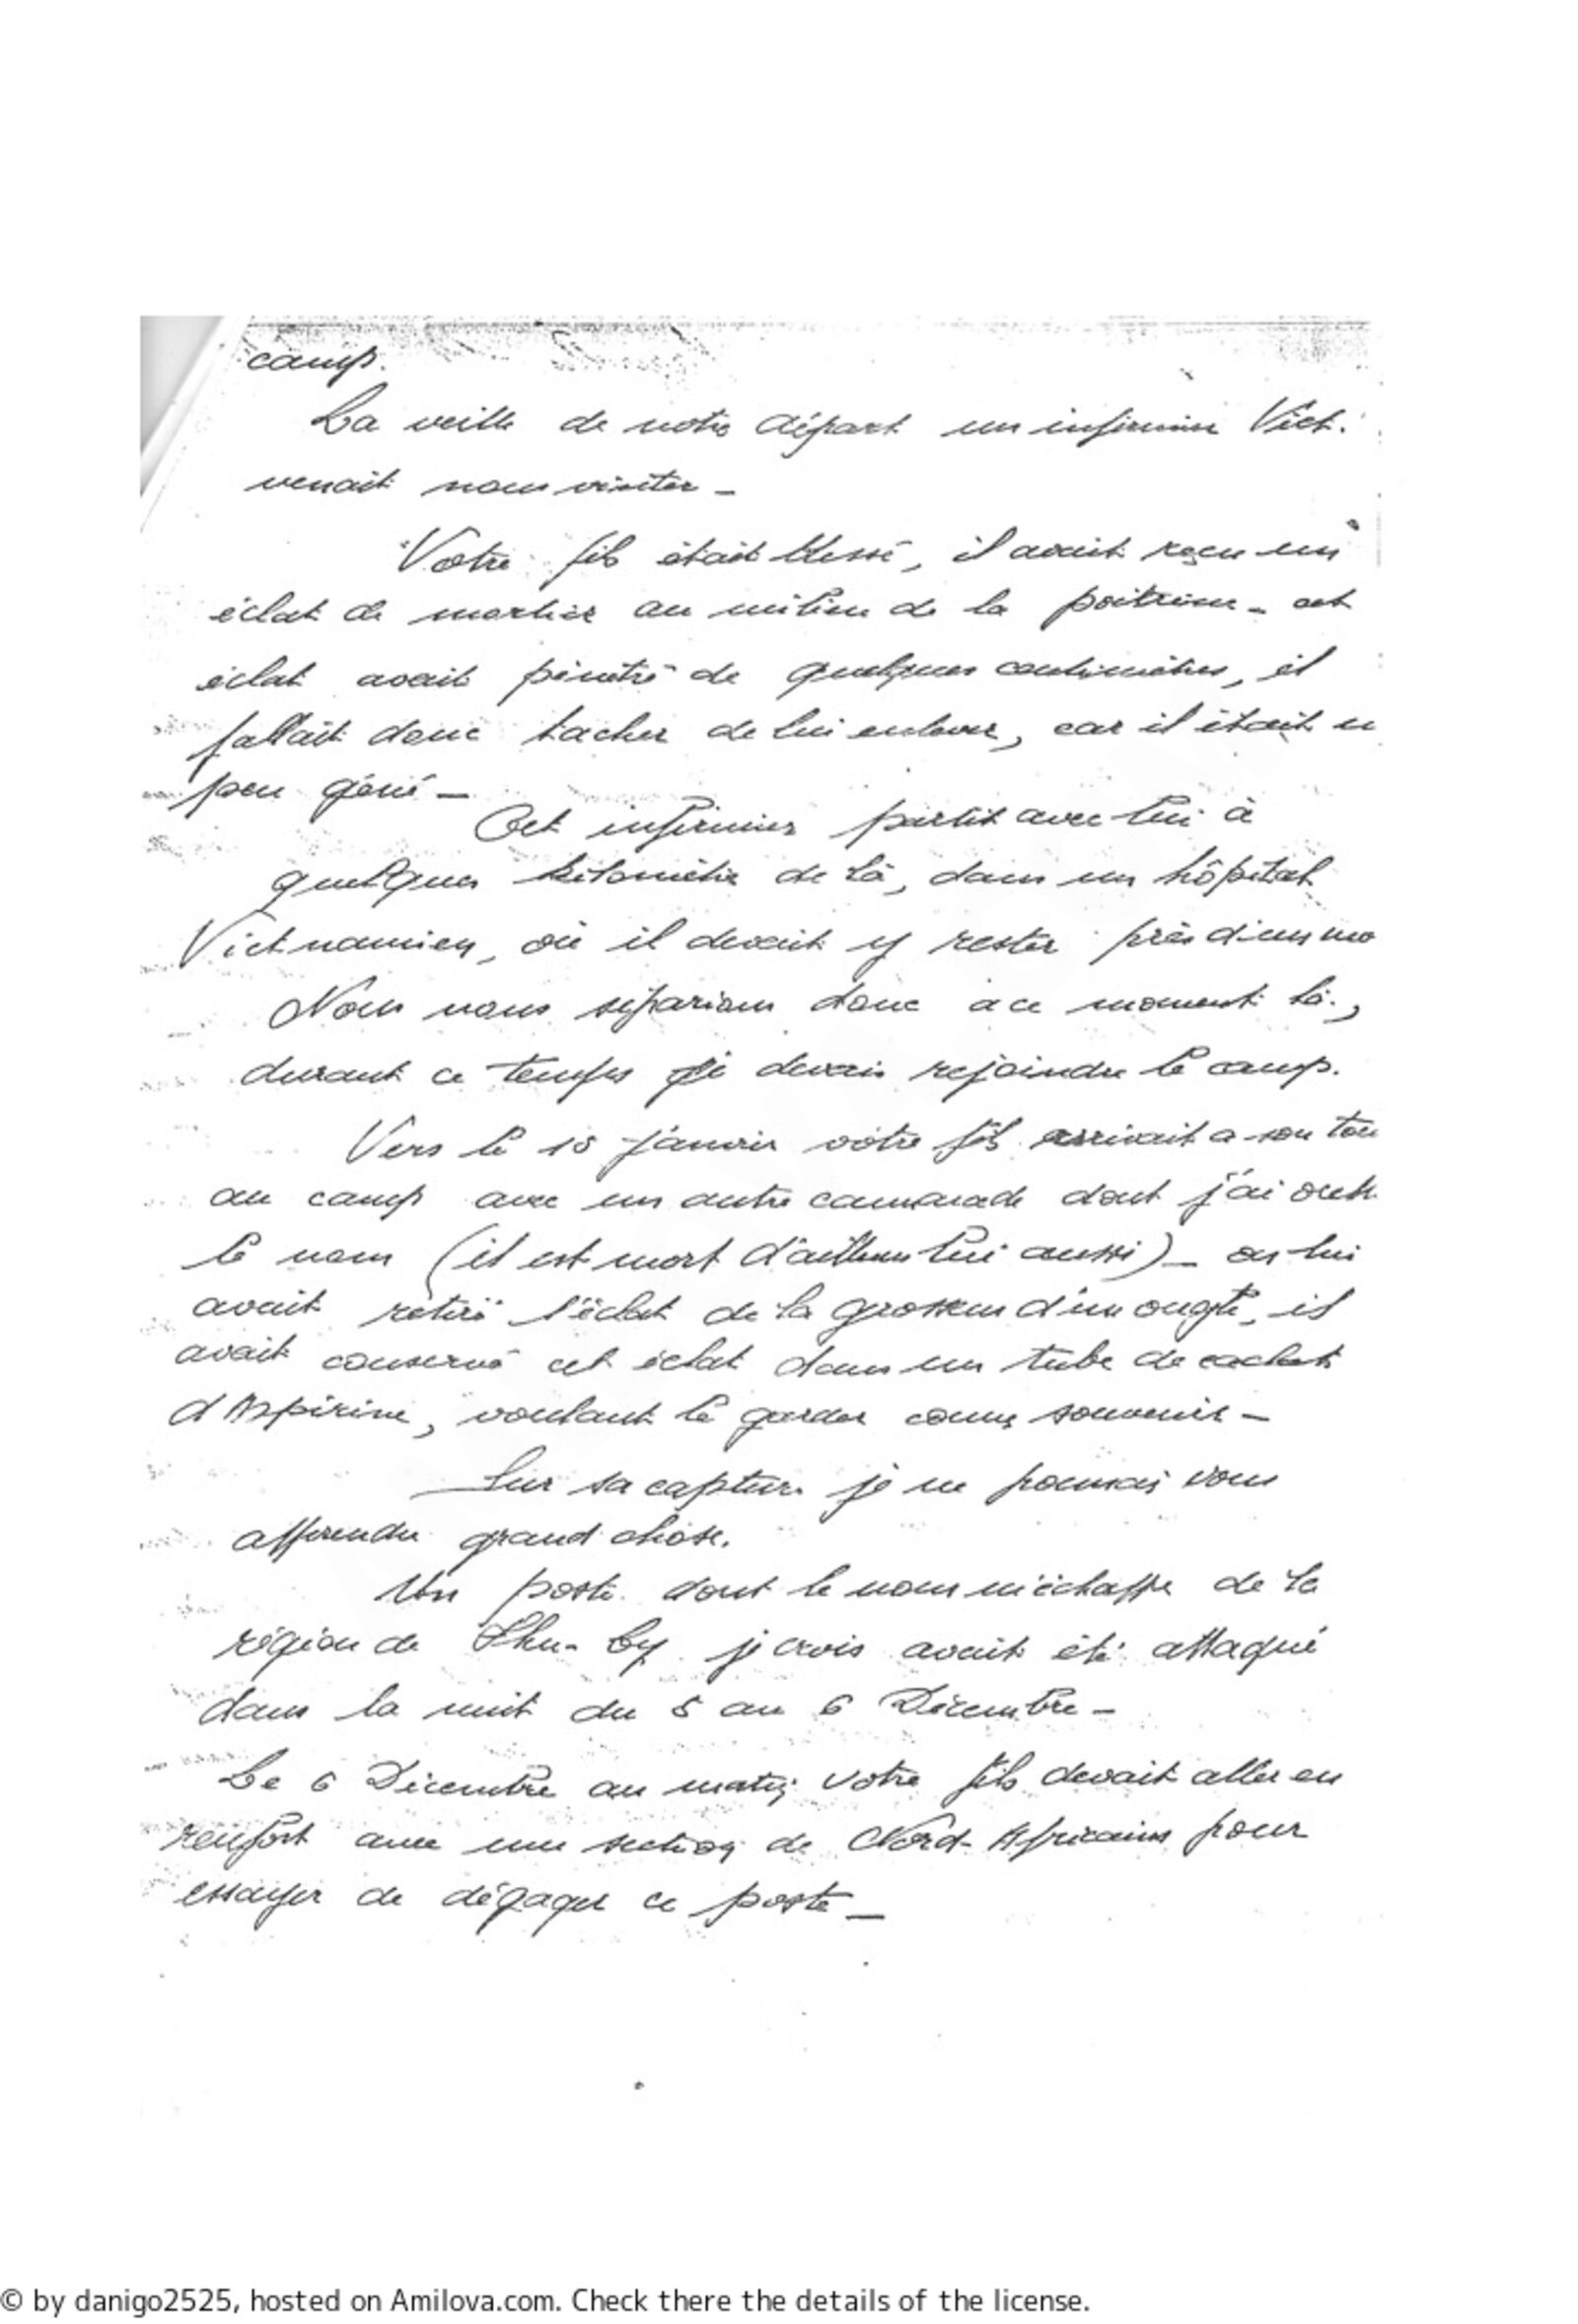 camp.
La veille de notre départ un infirmier Viet.
venait nous visiter _
Votre fils était blessé, il avait reçu un
éclat de mortier au milieu de la poitrine _ cet
éclat avait pénétré de quelques centimètres, il
fallait donc tacher de lui enlever, car il était u
peu gêné _
Cet infirmier partit avec lui à
quelques kilomètre de là, dans un hôpital
Vietnamien, où il devait y rester près d'un mo
Nous nous séparions donc a ce moment là,
durant ce temps je devais rejoindre le camp.
Vers le janvier votre fils arrivait a son tou
au camp avec un autre camarade dont j'ai oub
le nom (il est mort d'ailleurs lui aussi) _ on lui
avait retiré l'éclat de la grosseur d'un ongle, il
avait conservé cet éclat dans un tube de cachet
d'Aspirine, voulant le garder comme souvenir _
Sur sa capture je ne pourrais vous
apprendre grand chose.
Un poste dont le nom m'échappe de la
région de je crois avait été attaqué
dans la nuit du 5 au 6 Décembre _
Le 6 Décembre au matin votre fils devait aller en
renfort avec une section de Nord-Africains pour
essayer de dégager ce poste _
© by danigo2525, hosted on Amilova.com. Check there the details of the license.